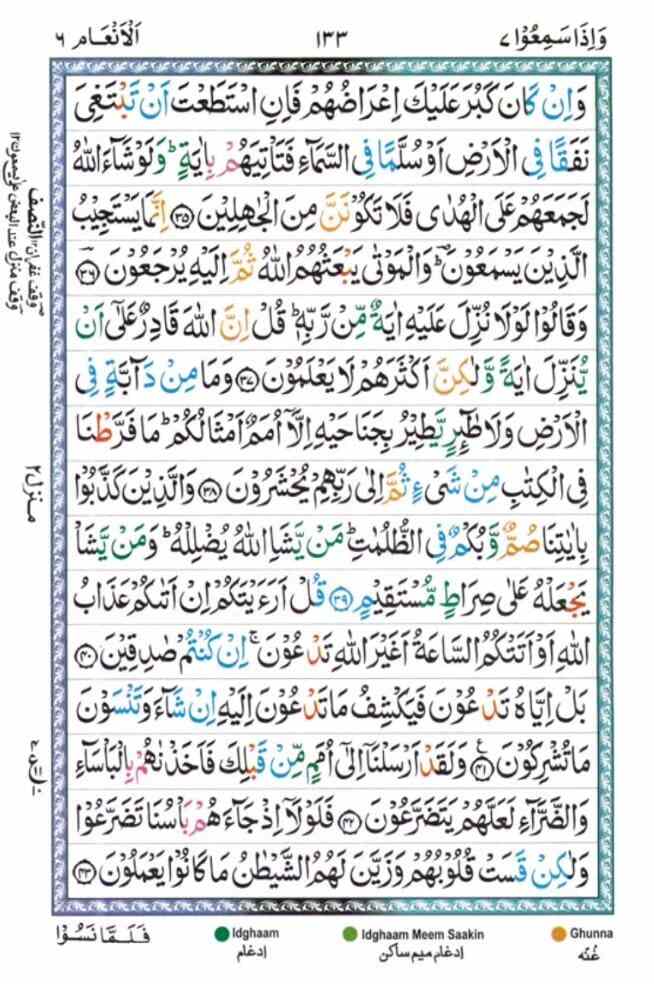 وَاِذَا سَمِعُوْا ٧ ١٣٣ اَلْاَنْعَام ٦
وَاِنْ كَانَ كَبُرَ عَلَيْكَ اِعْرَاضُهُمْ فَاِنِ اسْتَطَعْتَ اَنْ تَبْتَغِىَ
نَفَقًا فِى الْاَرْضِ اَوْ سُلَّمًا فِى السَّمَآءِ فَتَاْتِيَهُمْ بِاٰيَةٍ ؕ وَلَوْ شَآءَ اللّٰهُ
لَجَمَعَهُمْ عَلَى الْهُدٰى فَلَا تَكُوْنَنَّ مِنَ الْجٰهِلِيْنَ ﴿۳۵﴾ اِنَّمَا يَسْتَجِيْبُ
الَّذِيْنَ يَسْمَعُوْنَ ؕ وَالْمَوْتٰى يَبْعَثُهُمُ اللّٰهُ ثُمَّ اِلَيْهِ يُرْجَعُوْنَ ﴿۳۶﴾
وَقَالُوْا لَوْلَا نُزِّلَ عَلَيْهِ اٰيَةٌ مِّنْ رَّبِّهٖ ؕ قُلْ اِنَّ اللّٰهَ قَادِرٌ عَلٰٓى اَنْ
يُّنَزِّلَ اٰيَةً وَّلٰكِنَّ اَكْثَرَهُمْ لَا يَعْلَمُوْنَ ﴿۳۷﴾ وَمَا مِنْ دَآبَّةٍ فِى
الْاَرْضِ وَلَا طٰٓئِرٍ يَّطِيْرُ بِجَنَاحَيْهِ اِلَّاۤ اُمَمٌ اَمْثَالُكُمْ ؕ مَا فَرَّطْنَا
فِى الْكِتٰبِ مِنْ شَىْءٍ ثُمَّ اِلٰى رَبِّهِمْ يُحْشَرُوْنَ ﴿۳۸﴾ وَالَّذِيْنَ كَذَّبُوْا
بِاٰيٰتِنَا صُمٌّ وَّبُكْمٌ فِى الظُّلُمٰتِ ؕ مَنْ يَّشَاِ اللّٰهُ يُضْلِلْهُ ؕ وَمَنْ يَّشَاْ
يَجْعَلْهُ عَلٰى صِرَاطٍ مُّسْتَقِيْمٍ ﴿۳۹﴾ قُلْ اَرَءَيْتَكُمْ اِنْ اَتٰٮكُمْ عَذَابُ
اللّٰهِ اَوْ اَتَتْكُمُ السَّاعَةُ اَغَيْرَ اللّٰهِ تَدْعُوْنَ ۚ اِنْ كُنْتُمْ صٰدِقِيْنَ ﴿۴۰﴾
بَلْ اِيَّاهُ تَدْعُوْنَ فَيَكْشِفُ مَا تَدْعُوْنَ اِلَيْهِ اِنْ شَآءَ وَتَنْسَوْنَ
مَا تُشْرِكُوْنَ ﴿۴۱﴾ وَلَقَدْ اَرْسَلْنَاۤ اِلٰٓى اُمَمٍ مِّنْ قَبْلِكَ فَاَخَذْنٰهُمْ بِالْبَاْسَآءِ
وَالضَّرَّآءِ لَعَلَّهُمْ يَتَضَرَّعُوْنَ ﴿۴۲﴾ فَلَوْلَاۤ اِذْ جَآءَهُمْ بَاْسُنَا تَضَرَّعُوْا
وَلٰكِنْ قَسَتْ قُلُوْبُهُمْ وَزَيَّنَ لَهُمُ الشَّيْطٰنُ مَا كَانُوْا يَعْمَلُوْنَ ﴿۴۳﴾
النّصف
وقف غفران
منزل ٢
فَلَمَّا نَسُوْا
Idghaam
ادغام
Idghaam Meem Saakin
ادغام میم ساکن
Ghunna
غُنّہ